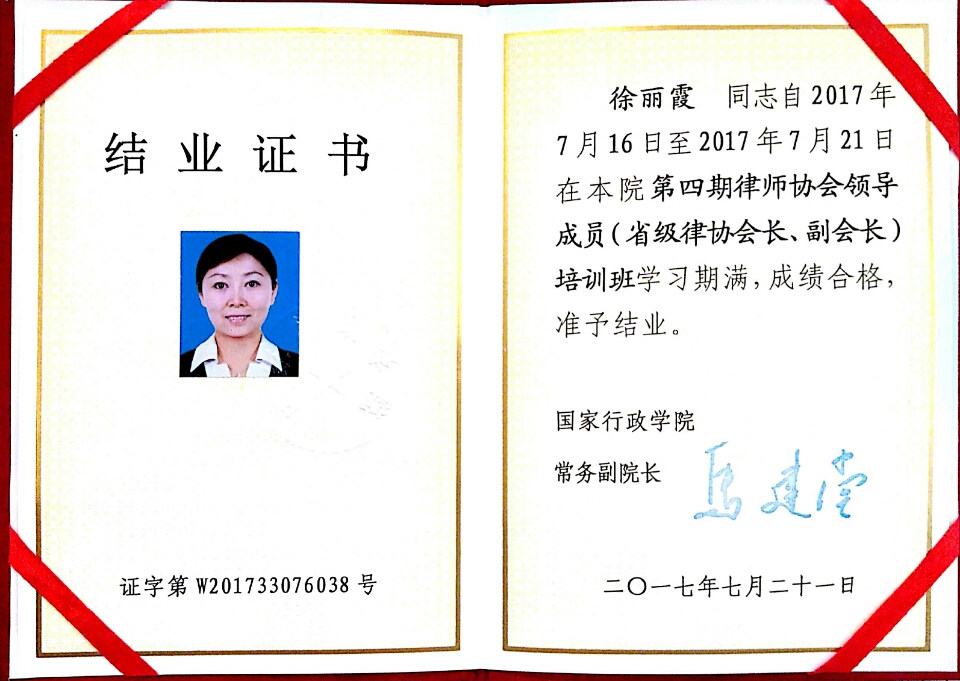 结业证书
证字第W201733076038号
徐丽霞 同志自2017年
7月16日至2017年7月21日
在本院第四期律师协会领导
成员(省级律协会长、副会长)
培训班学习期满,成绩合格,
准予结业。
国家行政学院
常务副院长 马建堂
二〇一七年七月二十一日